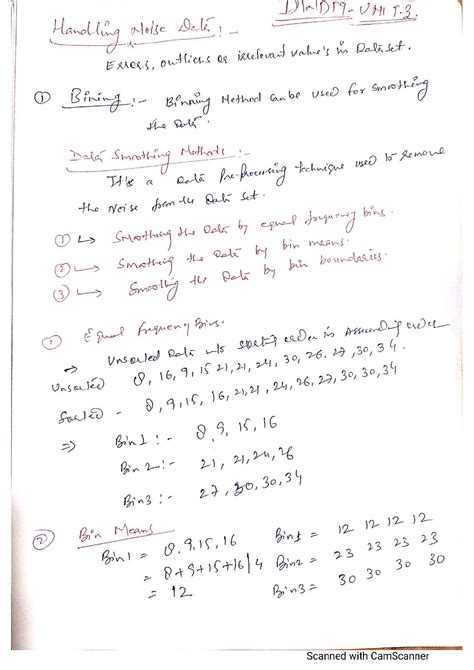 DWDM-UNIT-3.
Handling Noise Data :-
Errors, outliers or irrelevant value's in Dataset.
① Bining :- Binning Method can be used for smoothing
the Data.
Data Smoothing Methods :-
It's a Data Pre-processing technique used to remove
the Noise from the Data set.
① ↳ Smoothing the Data by equal frequency bins.
② ↳ Smoothing the Data by bin means.
③ ↳ Smoothing the Data by bin boundaries.
① Equal frequency Bins.
→ Unsorted Data into sorting order in Assending order
Unsorted 8, 16, 9, 15 21, 21, 24, 30, 26, 27, 30, 34.
Sorted - 8, 9, 15, 16, 21, 21, 24, 26, 27, 30, 30, 34
⇒ Bin 1 :- 8, 9, 15, 16
Bin 2 :- 21, 21, 24, 26
Bin 3 :- 27, 30, 30, 34
② Bin Means
Bin 1 = 8, 9, 15, 16 Bin 1 = 12 12 12 12
= 8+9+15+16/4 Bin 2 = 23 23 23 23
= 12 Bin 3 = 30 30 30 30
Scanned with CamScanner